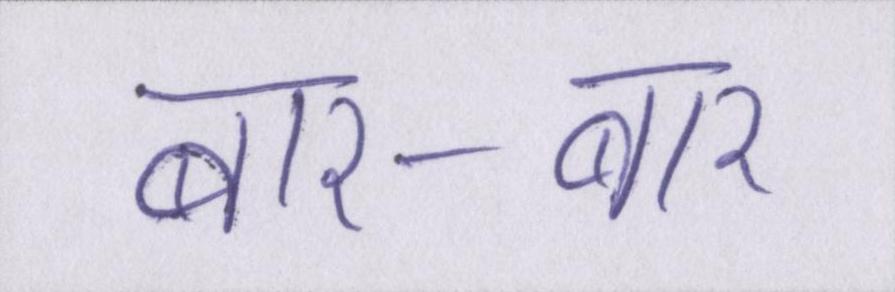 बार-बार